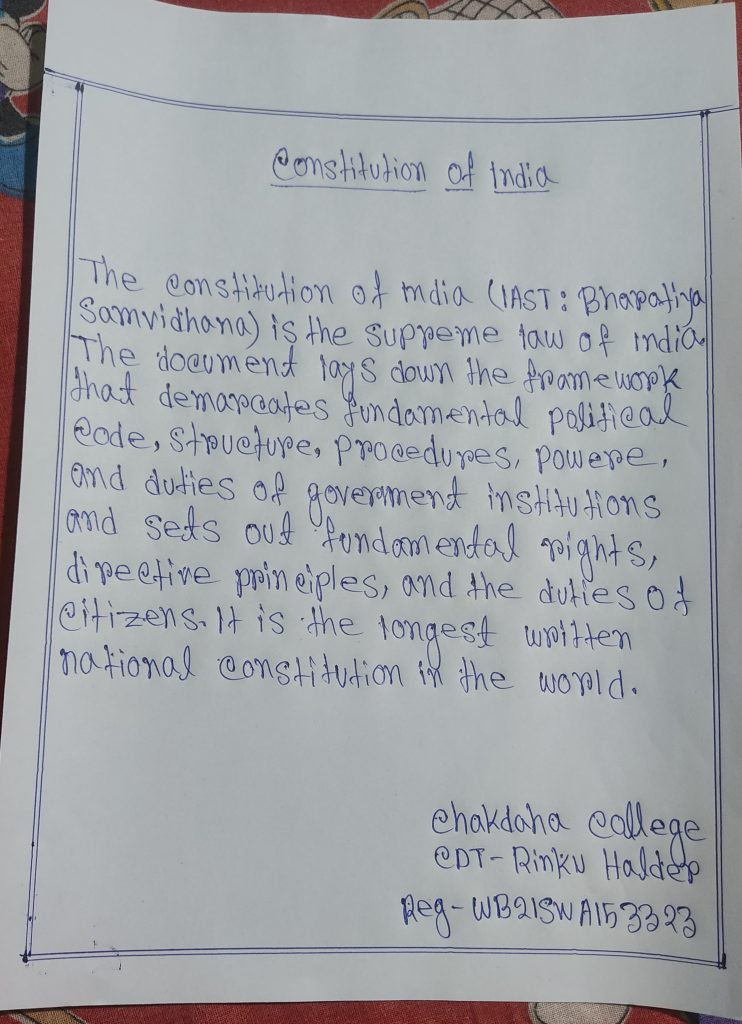 Constitution of India
The constitution of India (IAST: Bharatiya
Samvidhana) is the supreme law of India
The document lays down the framework
that demarcates fundamental political
code, structure, procedures, powere,
and duties of goverment institutions
and sets out fundamental rights,
directive principles, and the duties of
citizens. It is the longest written
national constitution in the world.
Chakdaha College
CDT- Rinku Halder
Reg- WB21SWA153323